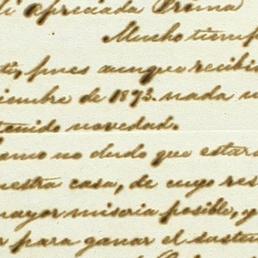 i apreciada Prima
Mucho tiemp
ti, pues aunque recibi
iembre de 1893. nada
tenido novedad.
omo no dudo que estar
uestra casa, de cuyo res
mayor miseria posible, y
r para ganar el susten